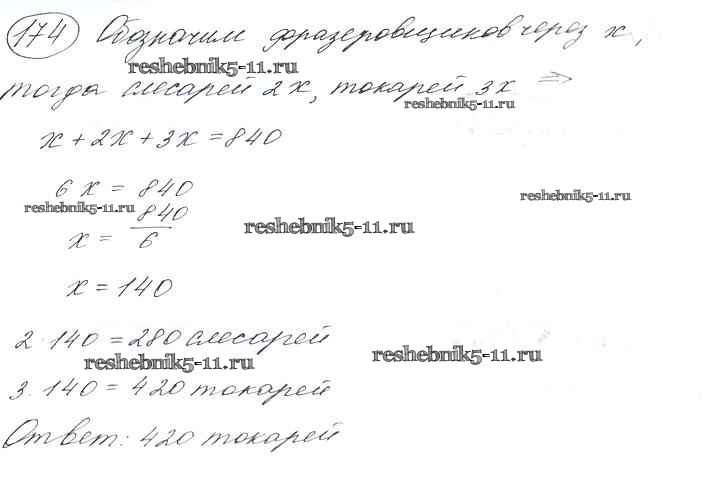 174 Обозначим фразеровщиков через x,
reshebnik5-11.ru
тогда слесарей 2x, токарей 3x ⇒
reshebnik5-11.ru
x + 2x + 3x = 840
6x = 840
reshebnik5-11.ru
reshebnik5-11.ru
x = 840/6
reshebnik5-11.ru
x = 140
2 · 140 = 280 слесарей
reshebnik5-11.ru
reshebnik5-11.ru
3 · 140 = 420 токарей
Ответ: 420 токарей